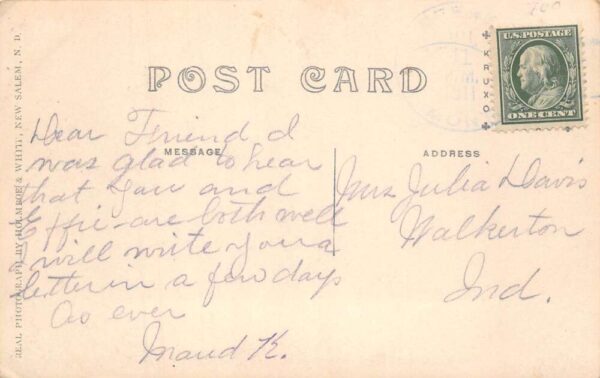 POST CARD
U.S. POSTAGE
ONE CENT
KRUXO
REAL PHOTOGRAPH BY HOLMBOE & WHITE, NEW SALEM, N. D.
MESSAGE
Dear Friend I
was glad to hear
that you and
Effie are both well
I will write you a
letter in a few days
As ever
Maud K.
ADDRESS
Mrs Julia Davis
Walkerton
Ind.